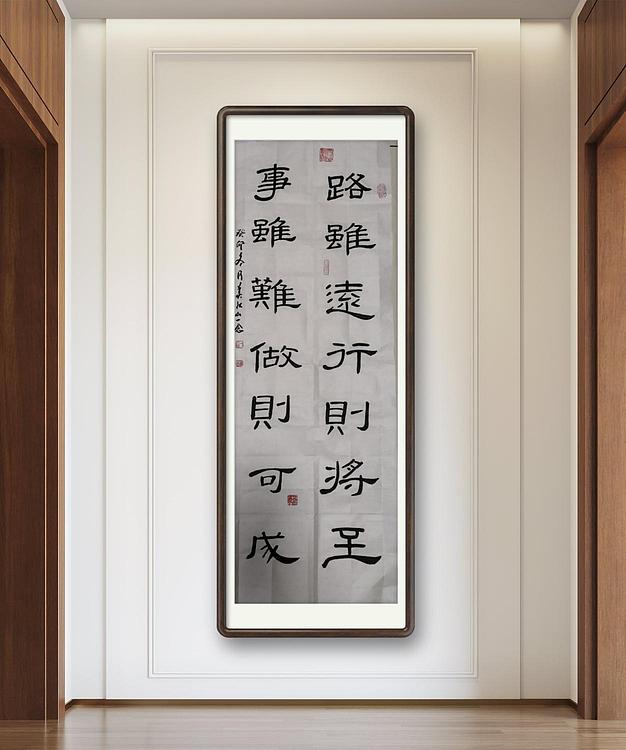 路雖遠行則將至
事雖難做則可成
癸卯冬月